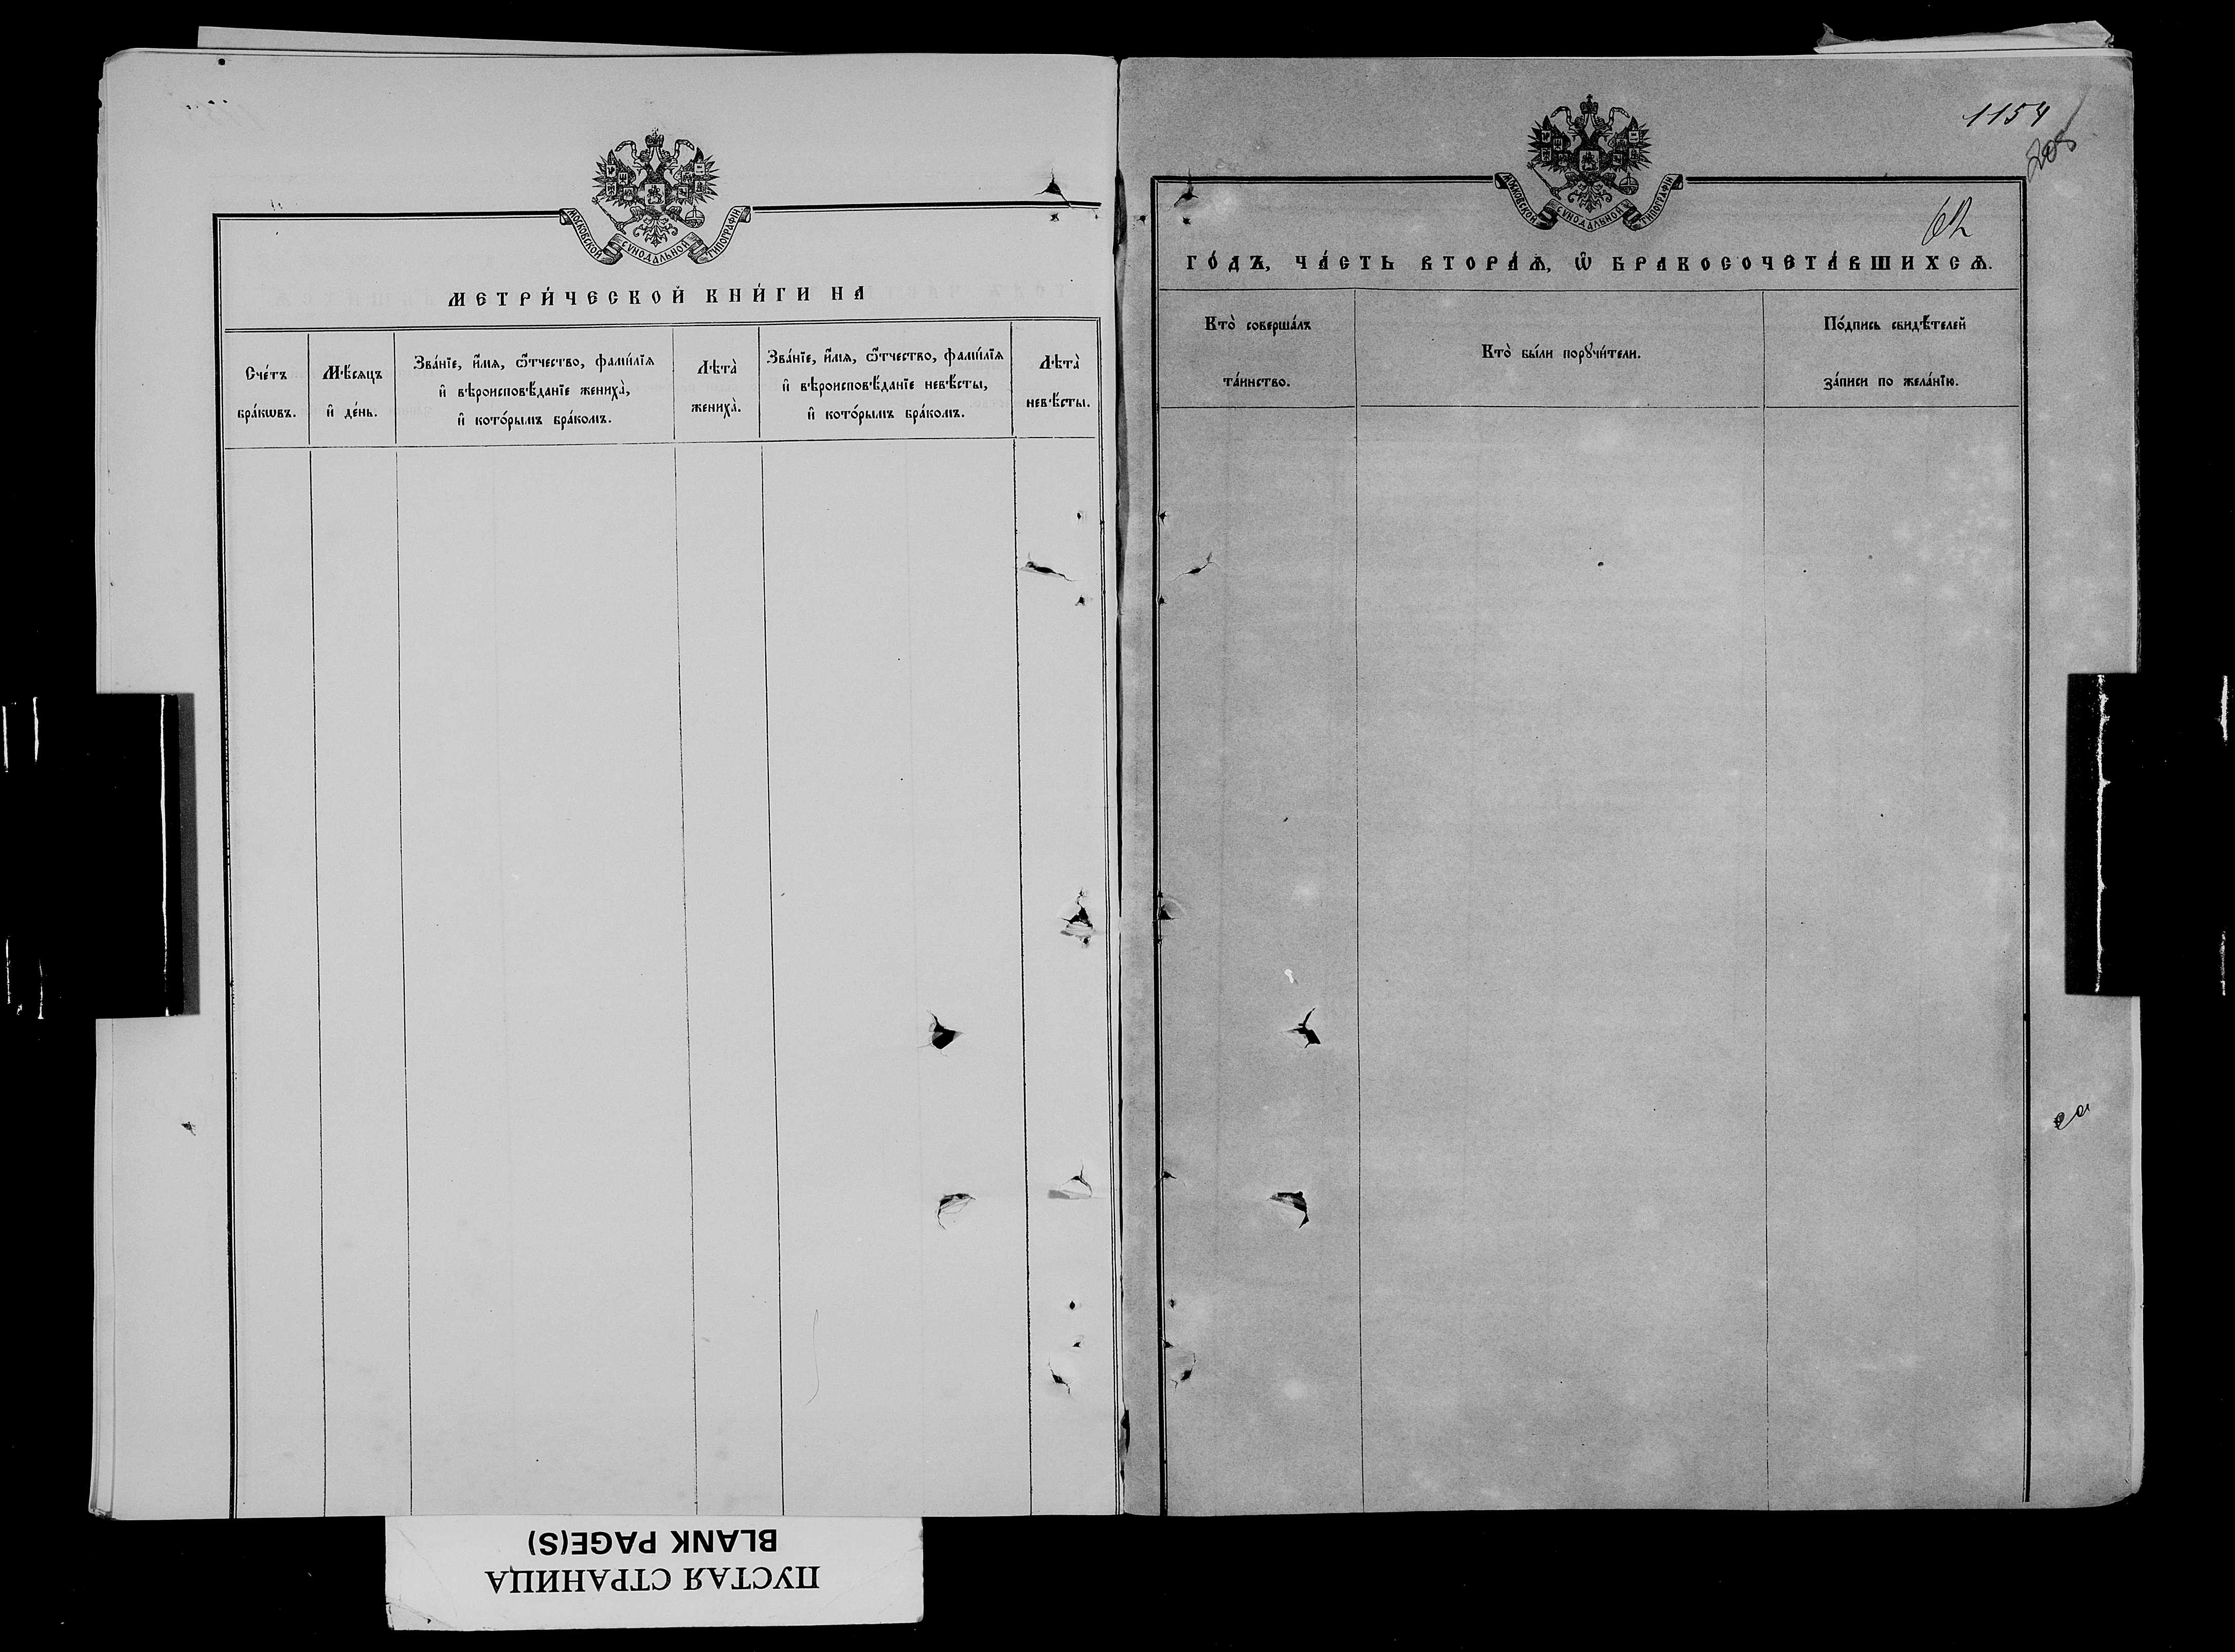 МОСКОВСКОЙ СѴНОДАЛЬНОЙ ТИПОГРАФІИ
МЕТРИ́ЧЕСКОЙ КНИ́ГИ НА
Сче́тъ
бра́кѡвъ.
Мѣ́сяцъ
и҆ де́нь.
Зва́нїе, и҆́мя, ѻ҆́тчество, фами́лїя
и҆ вѣроисповѣ́данїе жениха̀,
и҆ кото́рымъ бра́комъ.
Лѣта̀
жениха̀.
Зва́нїе, и҆́мя, ѻ҆́тчество, фами́лїя
и҆ вѣроисповѣ́данїе невѣ́сты,
и҆ кото́рымъ бра́комъ.
Лѣта̀
невѣ́сты.
1154
МОСКОВСКОЙ СѴНОДАЛЬНОЙ ТИПОГРАФІИ
62
ГО́ДЪ, ЧА́СТЬ ВТОРА́Ѧ, Ѽ БРАКОСОЧЕТА́ВШИХСѦ.
Кто̀ соверша́лъ
та́инство.
Кто̀ бы́ли порꙋчи́тели.
По́дпись свидѣ́телей
за́писи по жела́нїю.
ПУСТАЯ СТРАНИЦА
BLANK PAGE(S)